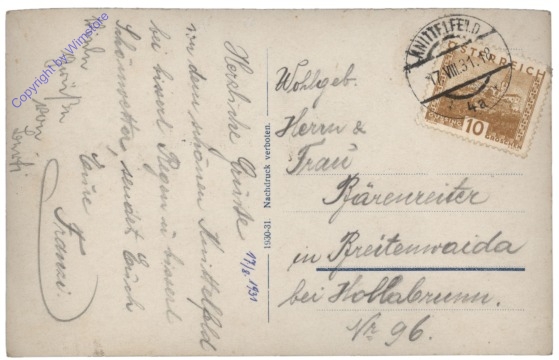 Herzliche Grüße
von dem schönen Knittelfeld
bei bisserl Regen u bisserl
Schönwetter, sendet Euch
Eure
Franzi.
17/8. 1931
1930-31. Nachdruck verboten.
Wohlgeb.
Herrn &
Frau
Bärenreiter
in Breitenwaida
bei Hollabrunn.
Nr. 96.
KNITTELFELD
17.VIII.31.18
4a
ÖSTERREICH
10
GROSCHEN
Copyright by Wimstore